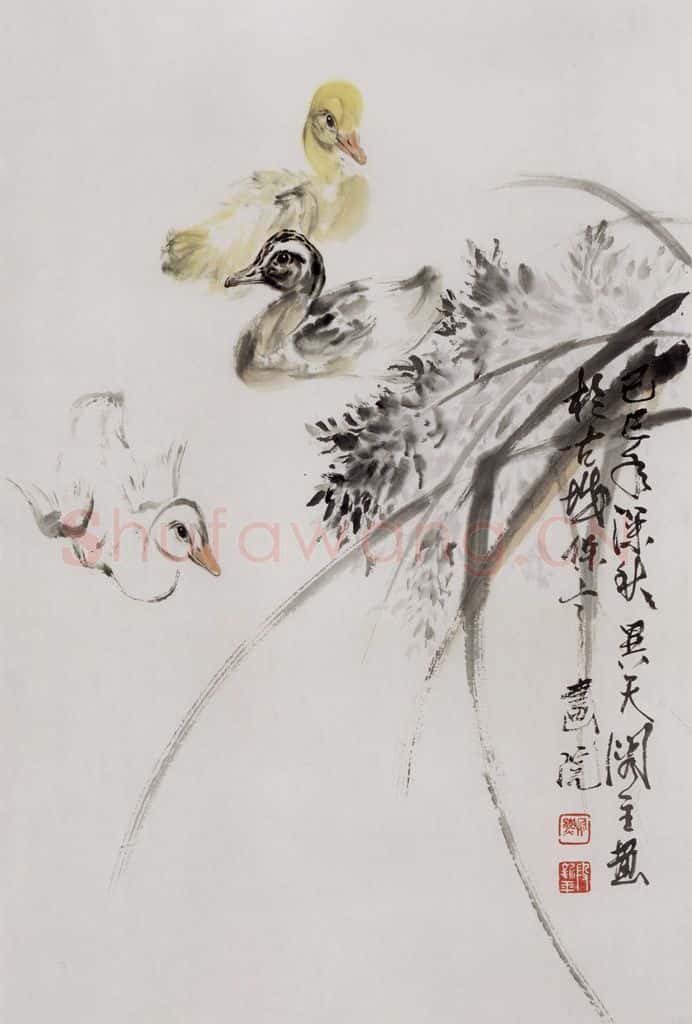 己巳年深秋天閣主畫
於古城保定畫院
Shufawang.CN